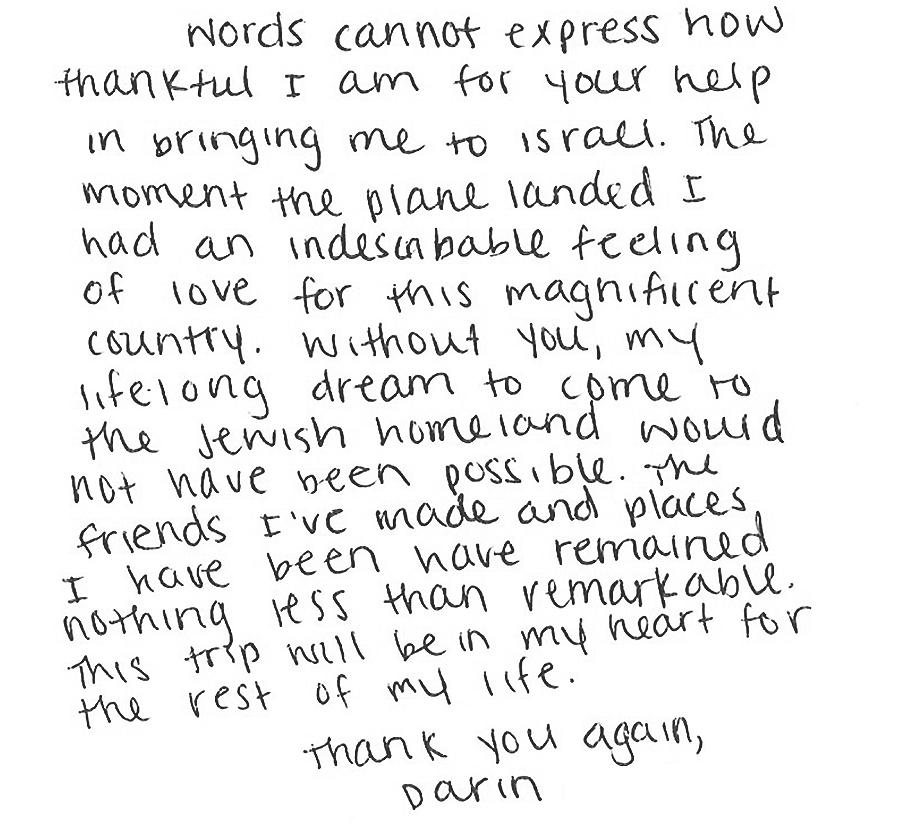 Words cannot express how
thankful I am for your help
in bringing me to israel. The
moment the plane landed I
had an indescribable feeling
of love for this magnificent
country. Without you, my
lifelong dream to come to
the Jewish homeland would
not have been possible. The
friends I've made and places
I have been have remained
nothing less than remarkable.
This trip will be in my heart for
the rest of my life.
Thank you again,
Darin